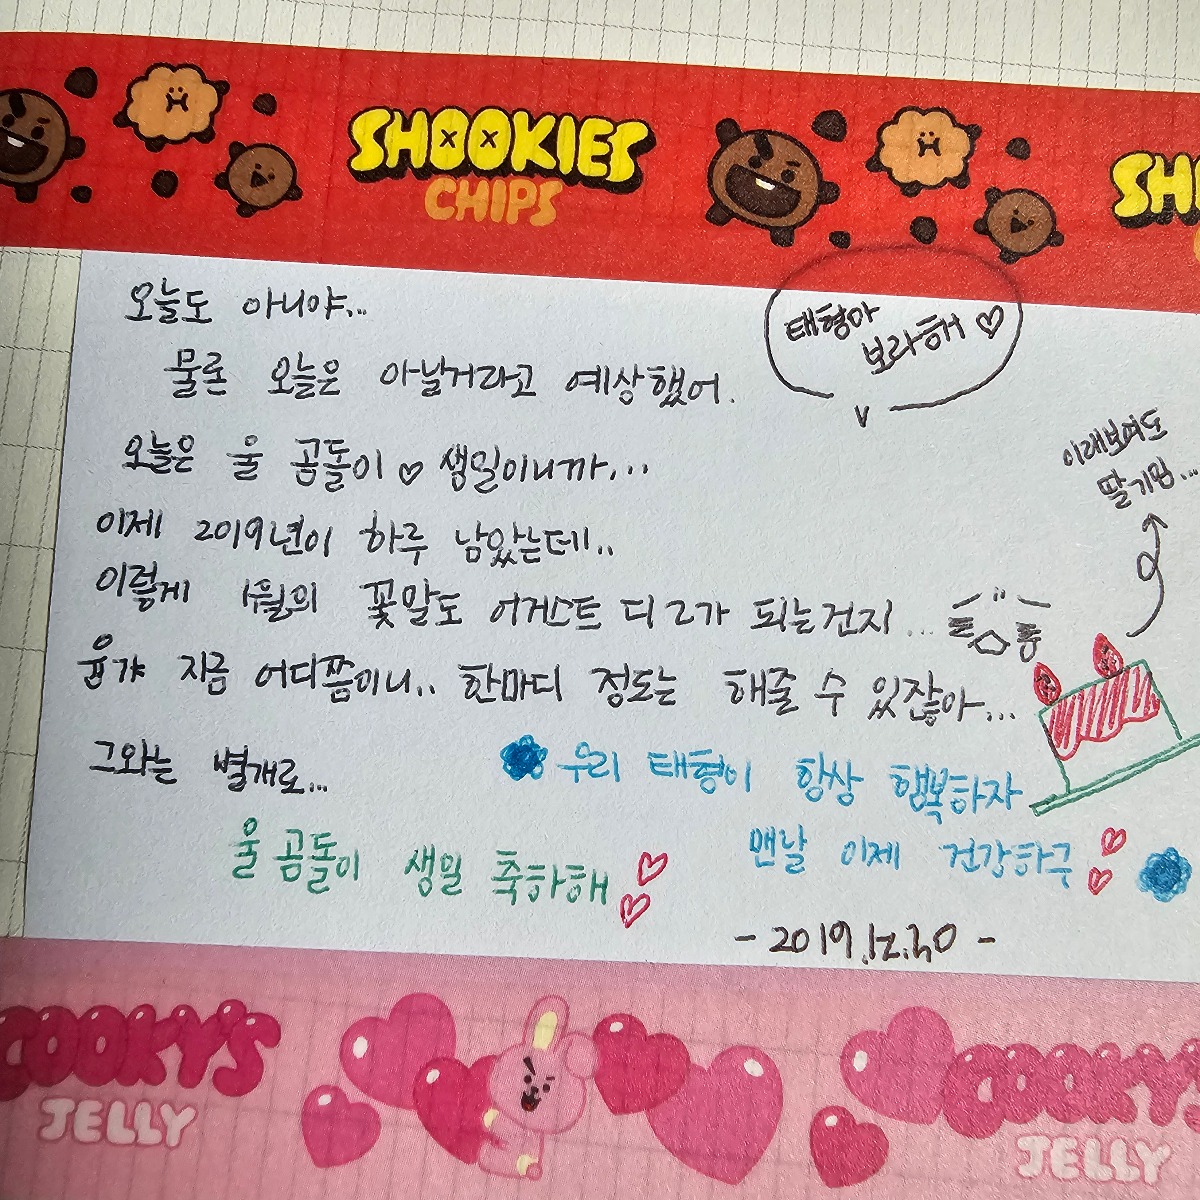 SHOOKIES
CHIPS
SH
오늘도 아니야...
태형아
보라해 ♡
물론 오늘은 아닐거라고 예상했어.
오늘은 울 곰돌이 ♡ 생일이니까...
이래보여도
딸기임...
이제 2019년이 하루 남았는데..
이렇게 1월의 꽃말도 어게스트 디 2가 되는건지...
윤갸 지금 어디쯤이니.. 한마디 정도는 해줄 수 있잖아...
그와는 별개로...
우리 태형이 항상 행복하자
울 곰돌이 생일 축하해
맨날 이제 건강하구
- 2019.12.30 -
COOKY'S
JELLY
COOKY'S
JELLY